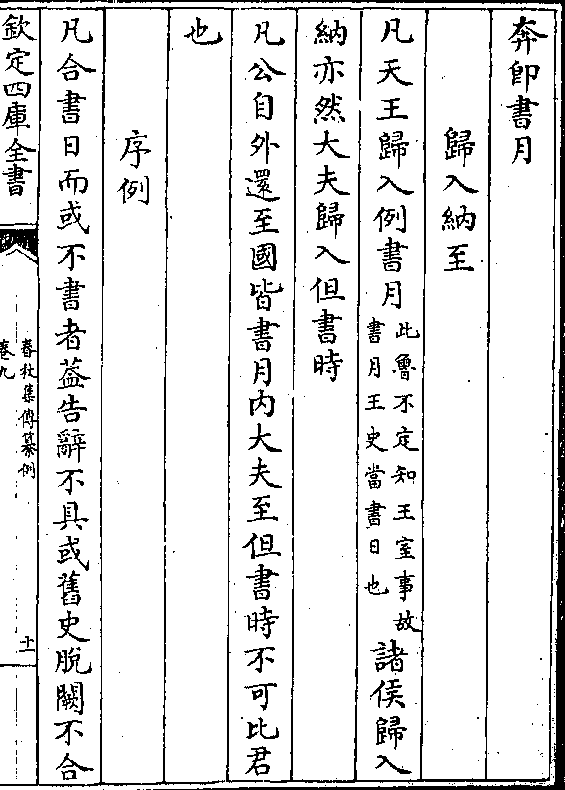 奔卽書月
歸入納至
凡天王歸入例書月此魯不定知王室事故書月王史當書日也諸侯歸入
納亦然大夫歸入但書時
凡公自外還至國皆書月内大夫至但書時不可比君
也
序例
凡合書日而或不書者葢告辭不具或舊史脫闕不合
欽定四庫全書
春秋集傳纂例
卷九
十一